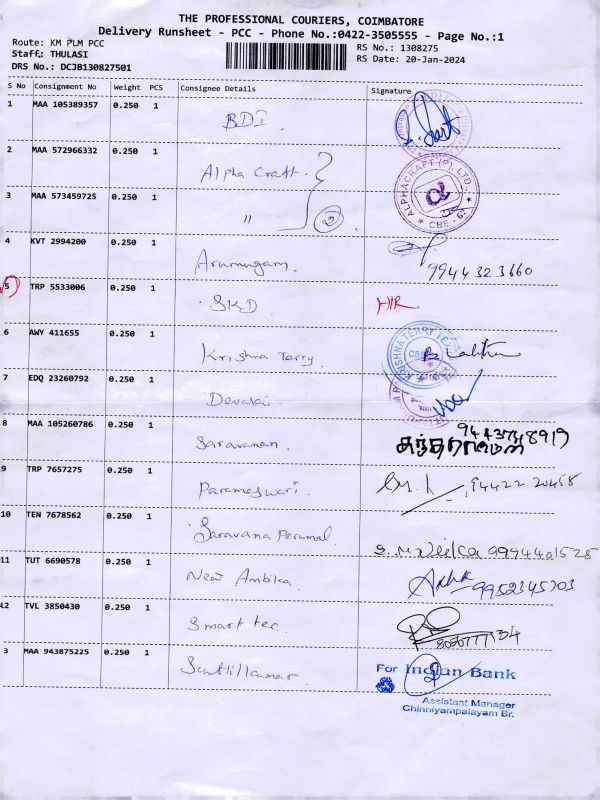 THE PROFESSIONAL COURIERS, COIMBATORE
Delivery Runsheet - PCC - Phone No.:0422-3505555 - Page No.:1
Route: KM PLM PCC
Staff: THULASI
DRS No.: DCJB130827501
RS No.: 1308275
RS Date: 20-Jan-2024
S No Consignment No Weight PCS Consignee Details Signature
1 MAA 105389357 0.250 1 BDI
2 MAA 572966332 0.250 1 Alpha Craft.
ALPHACRAFT (P) LTD. CBE - 62
3 MAA 573459725 0.250 1 " 2
4 KVT 2994200 0.250 1 Arumugam. 9944323660
5 TRP 5533006 0.250 1 SKD
6 AWY 411655 0.250 1 Krishna Terry. KRISHNA TERRY CBE
7 EDQ 23260792 0.250 1
8 MAA 105260786 0.250 1 Saravanan.
9 TRP 7657275 0.250 1 Parameswari. 94422 20458
10 TEN 7678562 0.250 1 Saravana Perumal. 9994401525
11 TUT 6690578 0.250 1 New Ambika 9952345703
12 TVL 3850430 0.250 1 Smart tec.
3 MAA 943875225 0.250 1 Senthilkumar.
For Indian Bank
Assistant Manager
Chinniyampalayam Br.